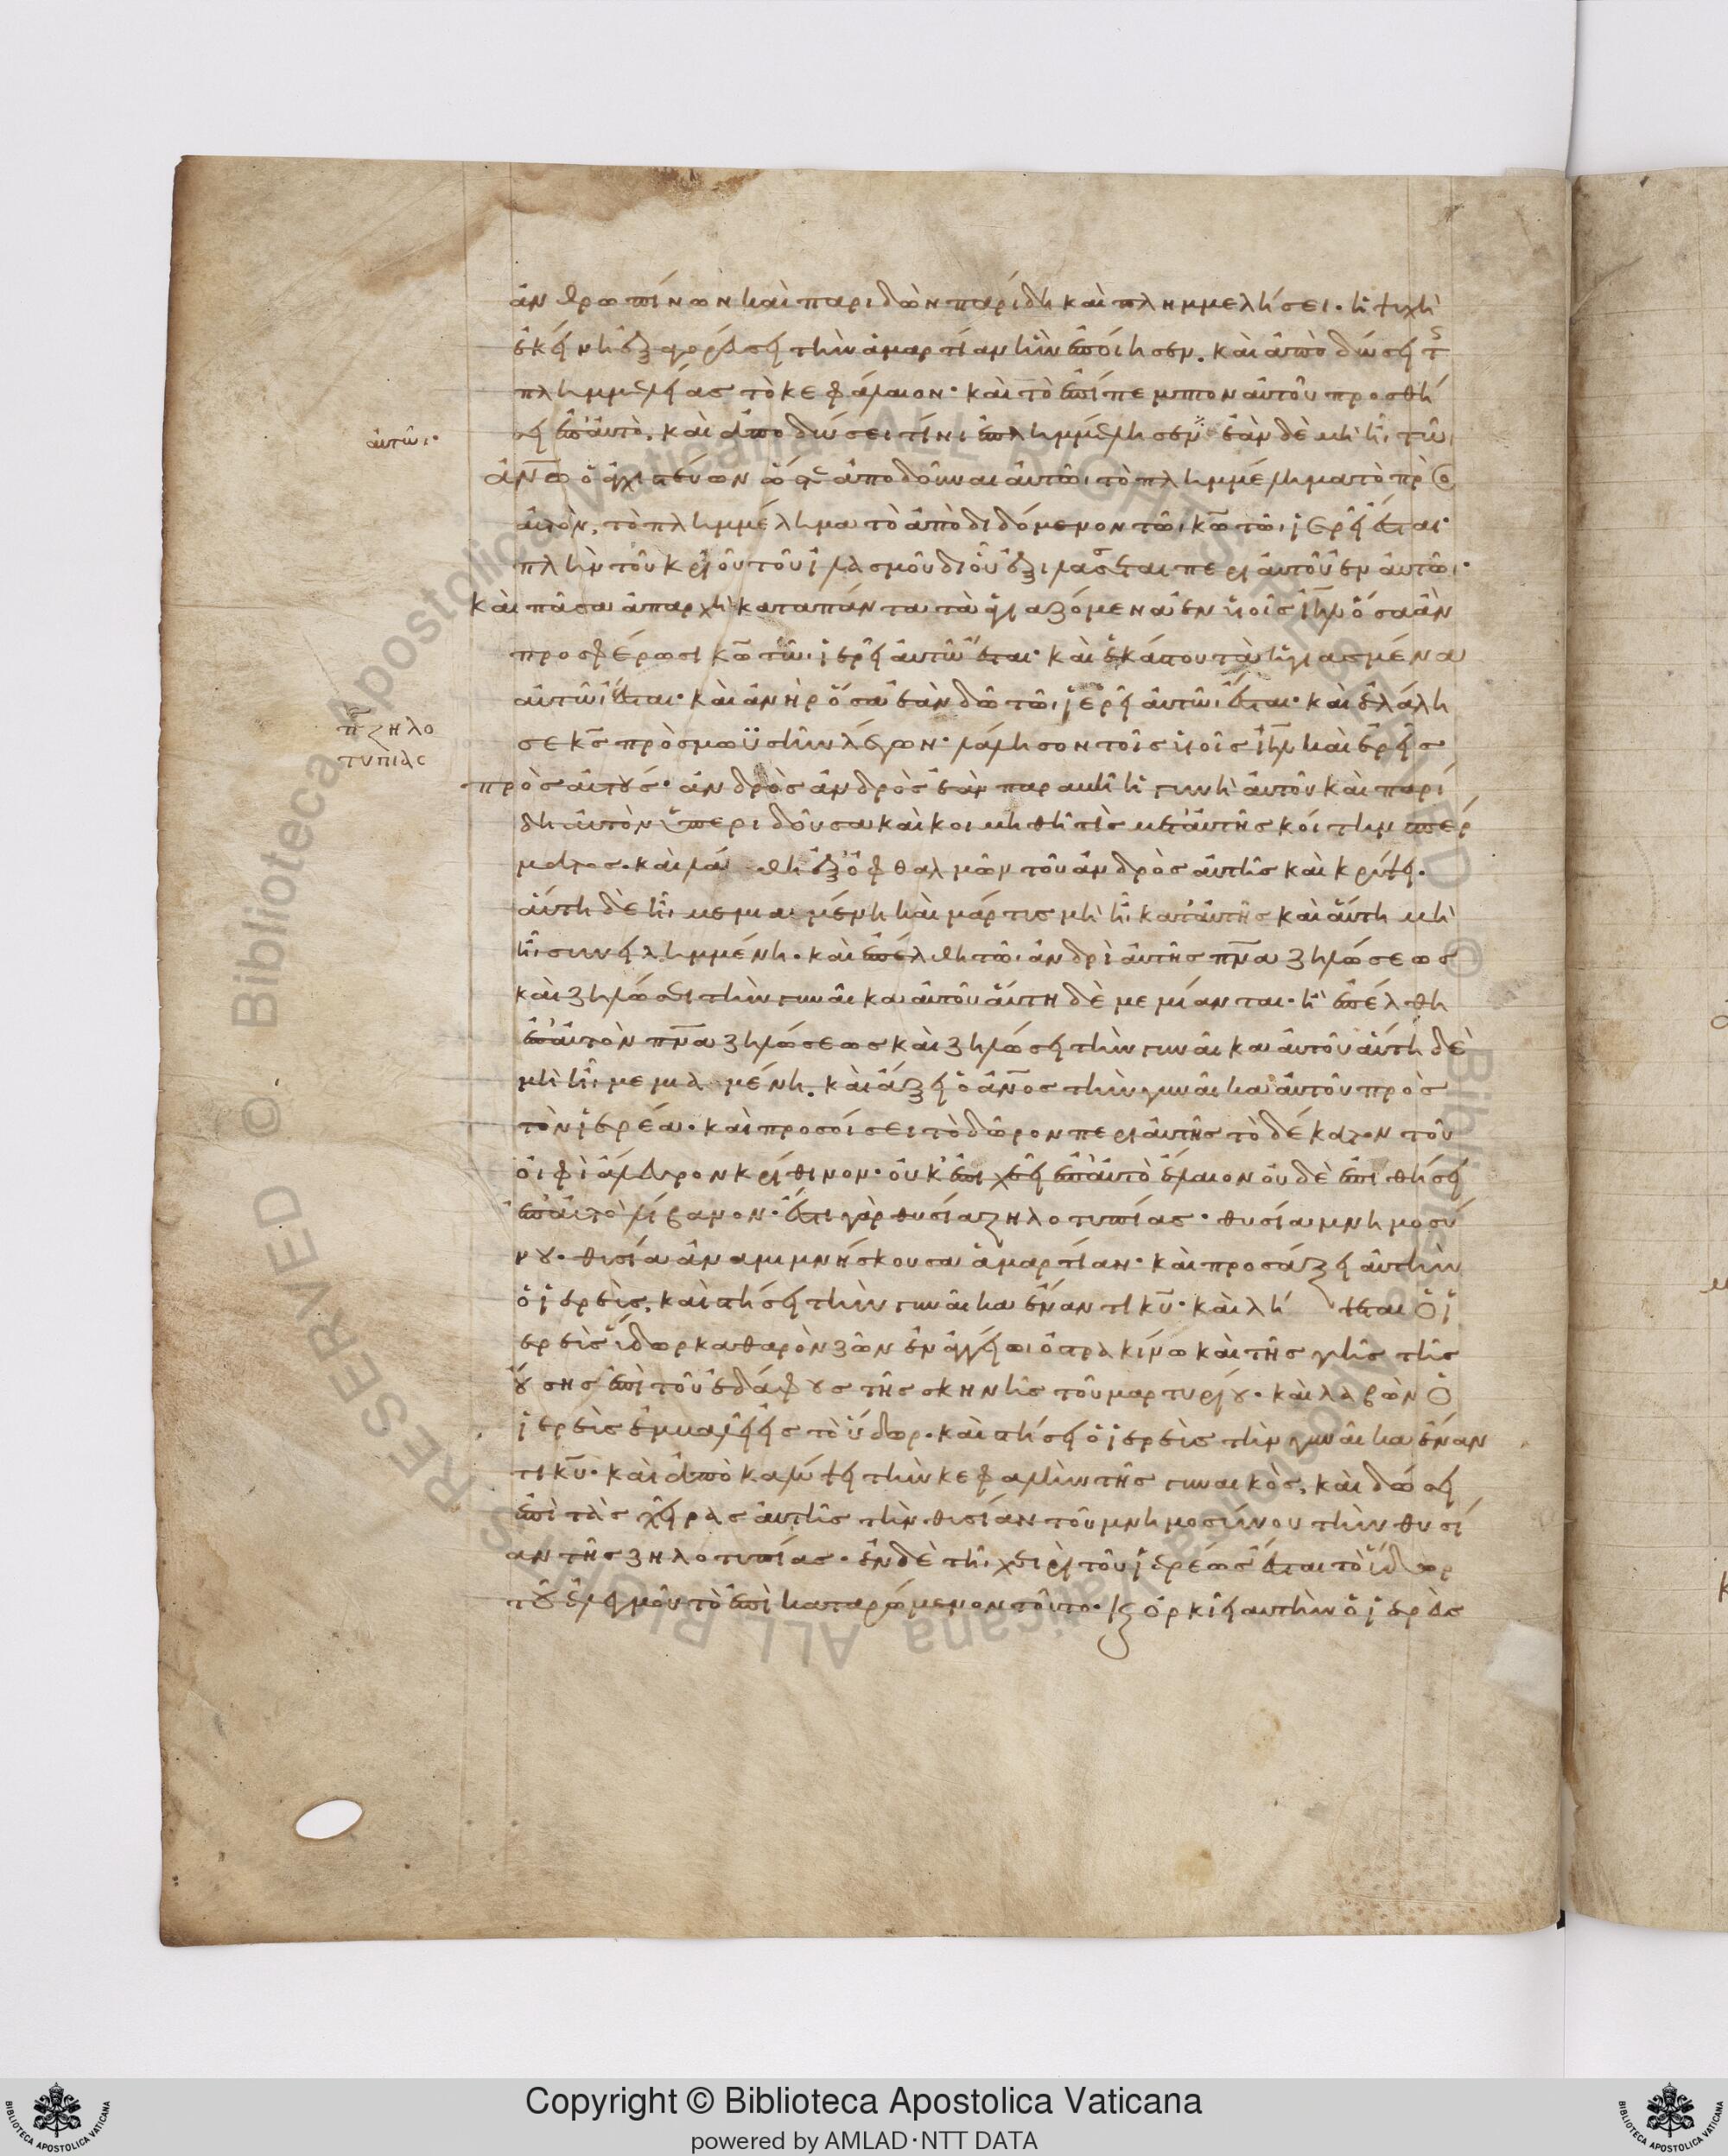 ἀνθρωπίνων καὶ παριδὼν παρίδη καὶ πλημμελήσει· ἡ ψυχὴ
ἐκείνη ἐξαγορεύσει τὴν ἁμαρτίαν ἣν ἐποίησεν. καὶ ἀποδώσει τ̅ς
πλημμελείας τὸ κεφάλαιον· καὶ τὸ ἐπίπεμπτον αὐτοῦ προσθή
σει ἐπ' αὐτὸ. καὶ ἀποδώσει τίνι ἐπλημμέλησεν· ἐὰν δὲ μὴ ἦι τῶ
αὐτῶι·
ἀν̅ω ὁ ἀγχιστεύων ὥστε ἀποδοῦναι αὐτῶι τὸ πλημμέλημα τὸ πρὸς
αὐτὸν. τὸ πλημμέλημα τὸ ἀποδιδόμενον τῶι κ̅ω τῶι ἱερεῖ ἔσται·
πλὴν τοῦ κριοῦ τοῦ ἱλασμοῦ δι οὗ ἐξιλάσεται περὶ αὐτοῦ ἐν αὐτῶι·
καὶ πᾶσα ἀπαρχὴ κατα πάντα τὰ ἁγιαζόμενα ἐν υἱοῖς ι̅η̅λ ὅσα ἂν
προσφέρωσι κ̅ω τῶι ἱερεῖ αὐτῶ ἔσται· καὶ ἑκάστου τὰ ἡγιασμένα
αὐτῶι ἔσται· καὶ ἀνὴρ ὅσα ἐὰν δῶ τῶι ἱερεῖ αὐτῶι ἔσται· καὶ ἐλάλη
σε κ̅ς πρὸς μωϋσῆν λέγων· λάλησον τοῖς υἱοῖς ι̅η̅λ καὶ ἐρεῖς
π ζηλο
τυπιας
πρὸς αὐτούς· ἀνδρὸς ἀνδρὸς ἐὰν παραβῆ ἡ γυνὴ αὐτοῦ καὶ παρί
δη αὐτὸν ὑπεριδοῦσα καὶ κοιμηθῆ τὶς μετ' αὐτῆς κοίτην σπέρ
ματος. καὶ λάθη ἐξ ὀφθαλμῶν τοῦ ἀνδρὸς αὐτῆς καὶ κρύψει.
αὐτὴ δὲ ἦι μεμιαμένη καὶ μάρτυς μὴ ἦι κατ' αὐτῆς καὶ αὐτὴ μὴ
ἦι συνειλημμένη. καὶ ἐπέλθη τῶι ἀνδρὶ αὐτῆς πν̅α ζηλώσεως
καὶ ζηλώσει τὴν γυναῖκα αὐτοῦ αὐτὴ δὲ μεμίανται· ἢ ἐπέλθη
ἐπ' αὐτὸν πν̅α ζηλώσεως καὶ ζηλώσει τὴν γυναῖκα αὐτοῦ αὐτὴ δὲ
μὴ ἦι μεμιαμένη. καὶ ἄξει ὁ ἀν̅ος τὴν γυναῖκα αὐτοῦ πρὸς
τὸν ἱερέα. καὶ προσοίσει τὸ δῶρον περὶ αὐτῆς τὸ δέκατον τοῦ
οἰφὶ ἄλευρον κρίθινον· οὐκ ἐπιχεεῖ ἐπ' αὐτὸ ἔλαιον οὐδὲ ἐπιθήσει
ἐπ' αὐτὸ λίβανον· ἔστι γὰρ θυσία ζηλοτυπίας· θυσία μνημοσύ
νου· θυσία ἀναμιμνήσκουσα ἁμαρτίαν· καὶ προσάξει αὐτὴν
ὁ ἱερεὺς. καὶ στήσει τὴν γυναῖκα ἔναντι κ̅υ· καὶ λή ψεται ὁ ἱ
ερεὺς ὕδωρ καθαρὸν ζῶν ἐν ἀγγείωι ὀστρακίνω καὶ τῆς γῆς τῆς
οὔσης ἐπὶ τοῦ ἐδάφους τῆς σκηνῆς τοῦ μαρτυρίου. καὶ λαβὼν ὁ
ἱερεὺς ἐμβαλεῖ εἰς τὸ ὕδωρ. καὶ στήσει ὁ ἱερεὺς τὴν γυναῖκα ἔναν
τι κ̅υ· καὶ ἀποκαλύψει τὴν κεφαλὴν τῆς γυναικὸς. καὶ δώσει
ἐπὶ τὰς χεῖρας αὐτῆς τὴν θυσίαν τοῦ μνημοσύνου τὴν θυσί
αν τῆς ζηλοτυπίας. ἐν δὲ τῆι χειρὶ τοῦ ἱερέως ἔσται τὸ ὕδωρ
τοῦ ἐλεγμοῦ τὸ ἐπικαταρώμενον τοῦτο. καὶ ὁρκιεῖ αὐτὴν ὁ ἱερεὺς
Copyright © Biblioteca Apostolica Vaticana
powered by AMLAD·NTT DATA